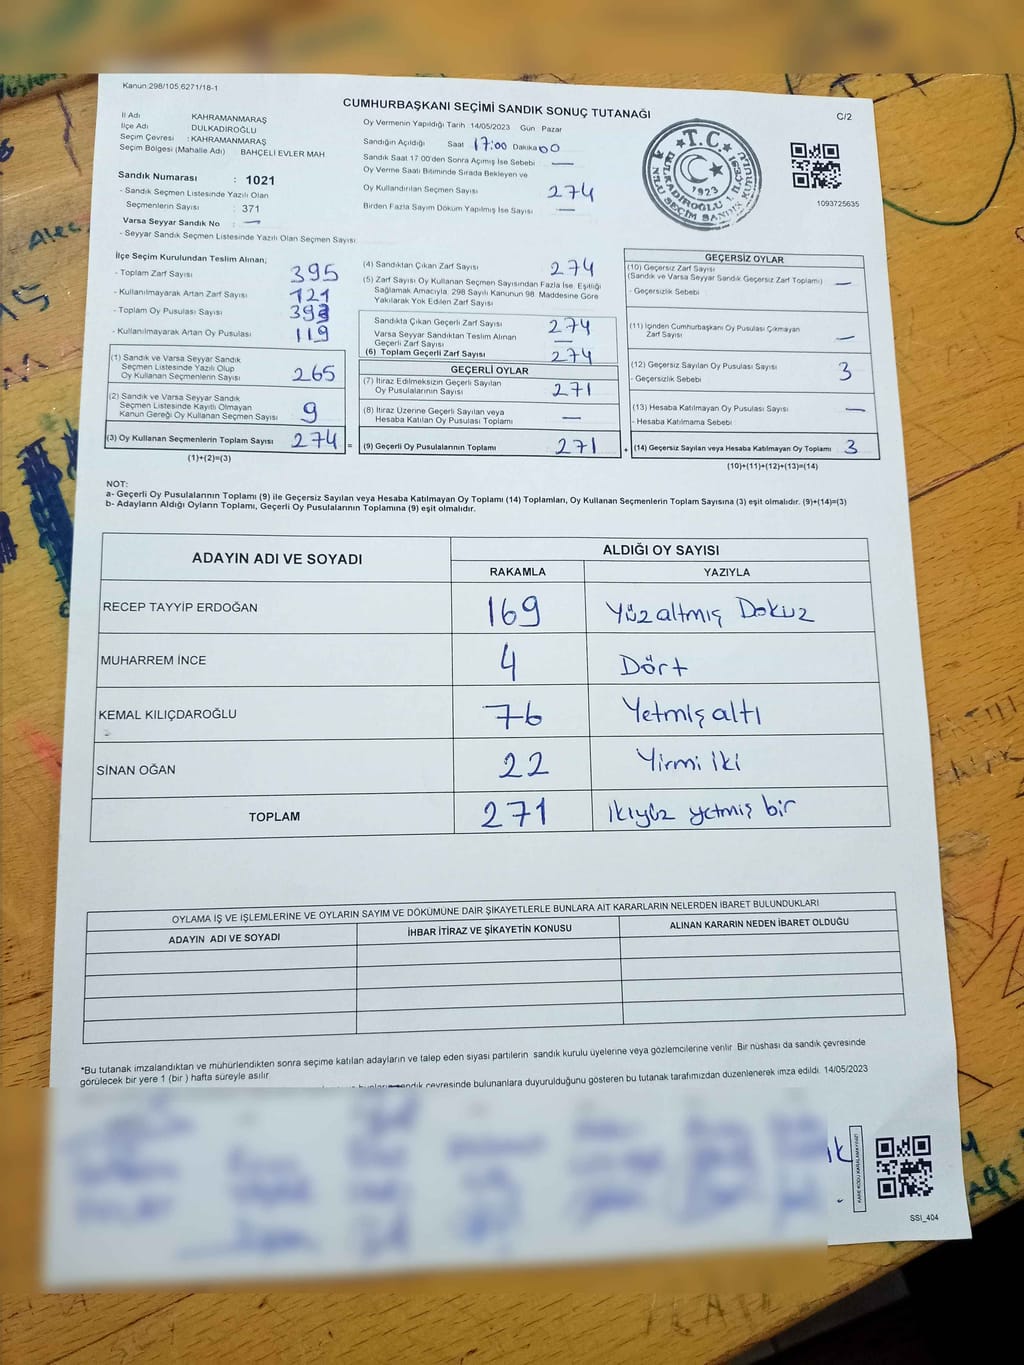 Kanun:298/105,6271/18-1
CUMHURBAŞKANI SEÇİMİ SANDIK SONUÇ TUTANAĞI
C/2
İl Adı KAHRAMANMARAŞ
İlçe Adı DULKADİROĞLU
Seçim Çevresi : KAHRAMANMARAŞ
Seçim Bölgesi (Mahalle Adı) BAHÇELİ EVLER MAH
Sandık Numarası : 1021
- Sandık Seçmen Listesinde Yazılı Olan
Seçmenlerin Sayısı : 371
Varsa Seyyar Sandık No : —
- Seyyar Sandık Seçmen Listesinde Yazılı Olan Seçmen Sayısı:
Oy Vermenin Yapıldığı Tarih 14/05/2023 Gün Pazar
Sandığın Açıldığı Saat 17:00 Dakika 00
Sandık Saat 17 00'den Sonra Açımış İse Sebebi —
Oy Verme Saati Bitiminde Sırada Bekleyen ve
Oy Kullandırılan Seçmen Sayısı 274
Birden Fazla Sayım Döküm Yapılmış İse Sayısı —
T.C.
1923
1093725635
İlçe Seçim Kurulundan Teslim Alınan;
- Toplam Zarf Sayısı 395
- Kullanılmayarak Artan Zarf Sayısı 121
- Toplam Oy Pusulası Sayısı 393
- Kullanılmayarak Artan Oy Pusulası 119
(1) Sandık ve Varsa Seyyar Sandık
Seçmen Listesinde Yazılı Olup
Oy Kullanan Seçmenlerin Sayısı 265
(2) Sandık ve Varsa Seyyar Sandık
Seçmen Listesinde Kayıtlı Olmayan
Kanun Gereği Oy Kullanan Seçmen Sayısı 9
(3) Oy Kullanan Seçmenlerin Toplam Sayısı 274 =
(1)+(2)=(3)
(4) Sandıktan Çıkan Zarf Sayısı 274
(5) Zarf Sayısı Oy Kullanan Seçmen Sayısından Fazla İse, Eşitliği
Sağlamak Amacıyla, 298 Sayılı Kanunun 98. Maddesine Göre
Yakılarak Yok Edilen Zarf Sayısı
Sandıkta Çıkan Geçerli Zarf Sayısı 274
Varsa Seyyar Sandıktan Teslim Alınan
Geçerli Zarf Sayısı —
(6) Toplam Geçerli Zarf Sayısı 274
GEÇERLİ OYLAR
(7) İtiraz Edilmeksizin Geçerli Sayılan
Oy Pusulalarının Sayısı 271
(8) İtiraz Üzerine Geçerli Sayılan veya
Hesaba Katılan Oy Pusulası Toplamı —
(9) Geçerli Oy Pusulalarının Toplamı 271 +
GEÇERSİZ OYLAR
(10) Geçersiz Zarf Sayısı
(Sandık ve Varsa Seyyar Sandık Geçersiz Zarf Toplamı) —
- Geçersizlik Sebebi
(11) İçinden Cumhurbaşkanı Oy Pusulası Çıkmayan
Zarf Sayısı —
(12) Geçersiz Sayılan Oy Pusulası Sayısı 3
- Geçersizlik Sebebi
(13) Hesaba Katılmayan Oy Pusulası Sayısı —
- Hesaba Katılmama Sebebi
(14) Geçersiz Sayılan veya Hesaba Katılmayan Oy Toplamı 3
(10)+(11)+(12)+(13)=(14)
NOT:
a- Geçerli Oy Pusulalarının Toplamı (9) ile Geçersiz Sayılan veya Hesaba Katılmayan Oy Toplamı (14) Toplamları, Oy Kullanan Seçmenlerin Toplam Sayısına (3) eşit olmalıdır. (9)+(14)=(3)
b- Adayların Aldığı Oyların Toplamı, Geçerli Oy Pusulalarının Toplamına (9) eşit olmalıdır.
ADAYIN ADI VE SOYADI
ALDIĞI OY SAYISI
RAKAMLA YAZIYLA
RECEP TAYYİP ERDOĞAN 169 Yüzaltmış Dokuz
MUHARREM İNCE 4 Dört
KEMAL KILIÇDAROĞLU 76 Yetmişaltı
SİNAN OĞAN 22 Yirmi iki
TOPLAM 271 ikiyüz yetmiş bir
OYLAMA İŞ VE İŞLEMLERİNE VE OYLARIN SAYIM VE DÖKÜMÜNE DAİR ŞİKAYETLERLE BUNLARA AİT KARARLARIN NELERDEN İBARET BULUNDUKLARI
ADAYIN ADI VE SOYADI İHBAR İTİRAZ VE ŞİKAYETİN KONUSU ALINAN KARARIN NEDEN İBARET OLDUĞU
*Bu tutanak imzalandıktan ve mühürlendikten sonra seçime katılan adayların ve talep eden siyasi partilerin sandık kurulu üyelerine veya gözlemcilerine verilir Bir nüshası da sandık çevresinde
görülecek bir yere 1 (bir) hafta süreyle asılır
sandık çevresinde bulunanlara duyurulduğunu gösteren bu tutanak tarafımızdan düzenlenerek imza edildi. 14/05/2023
SSI_404